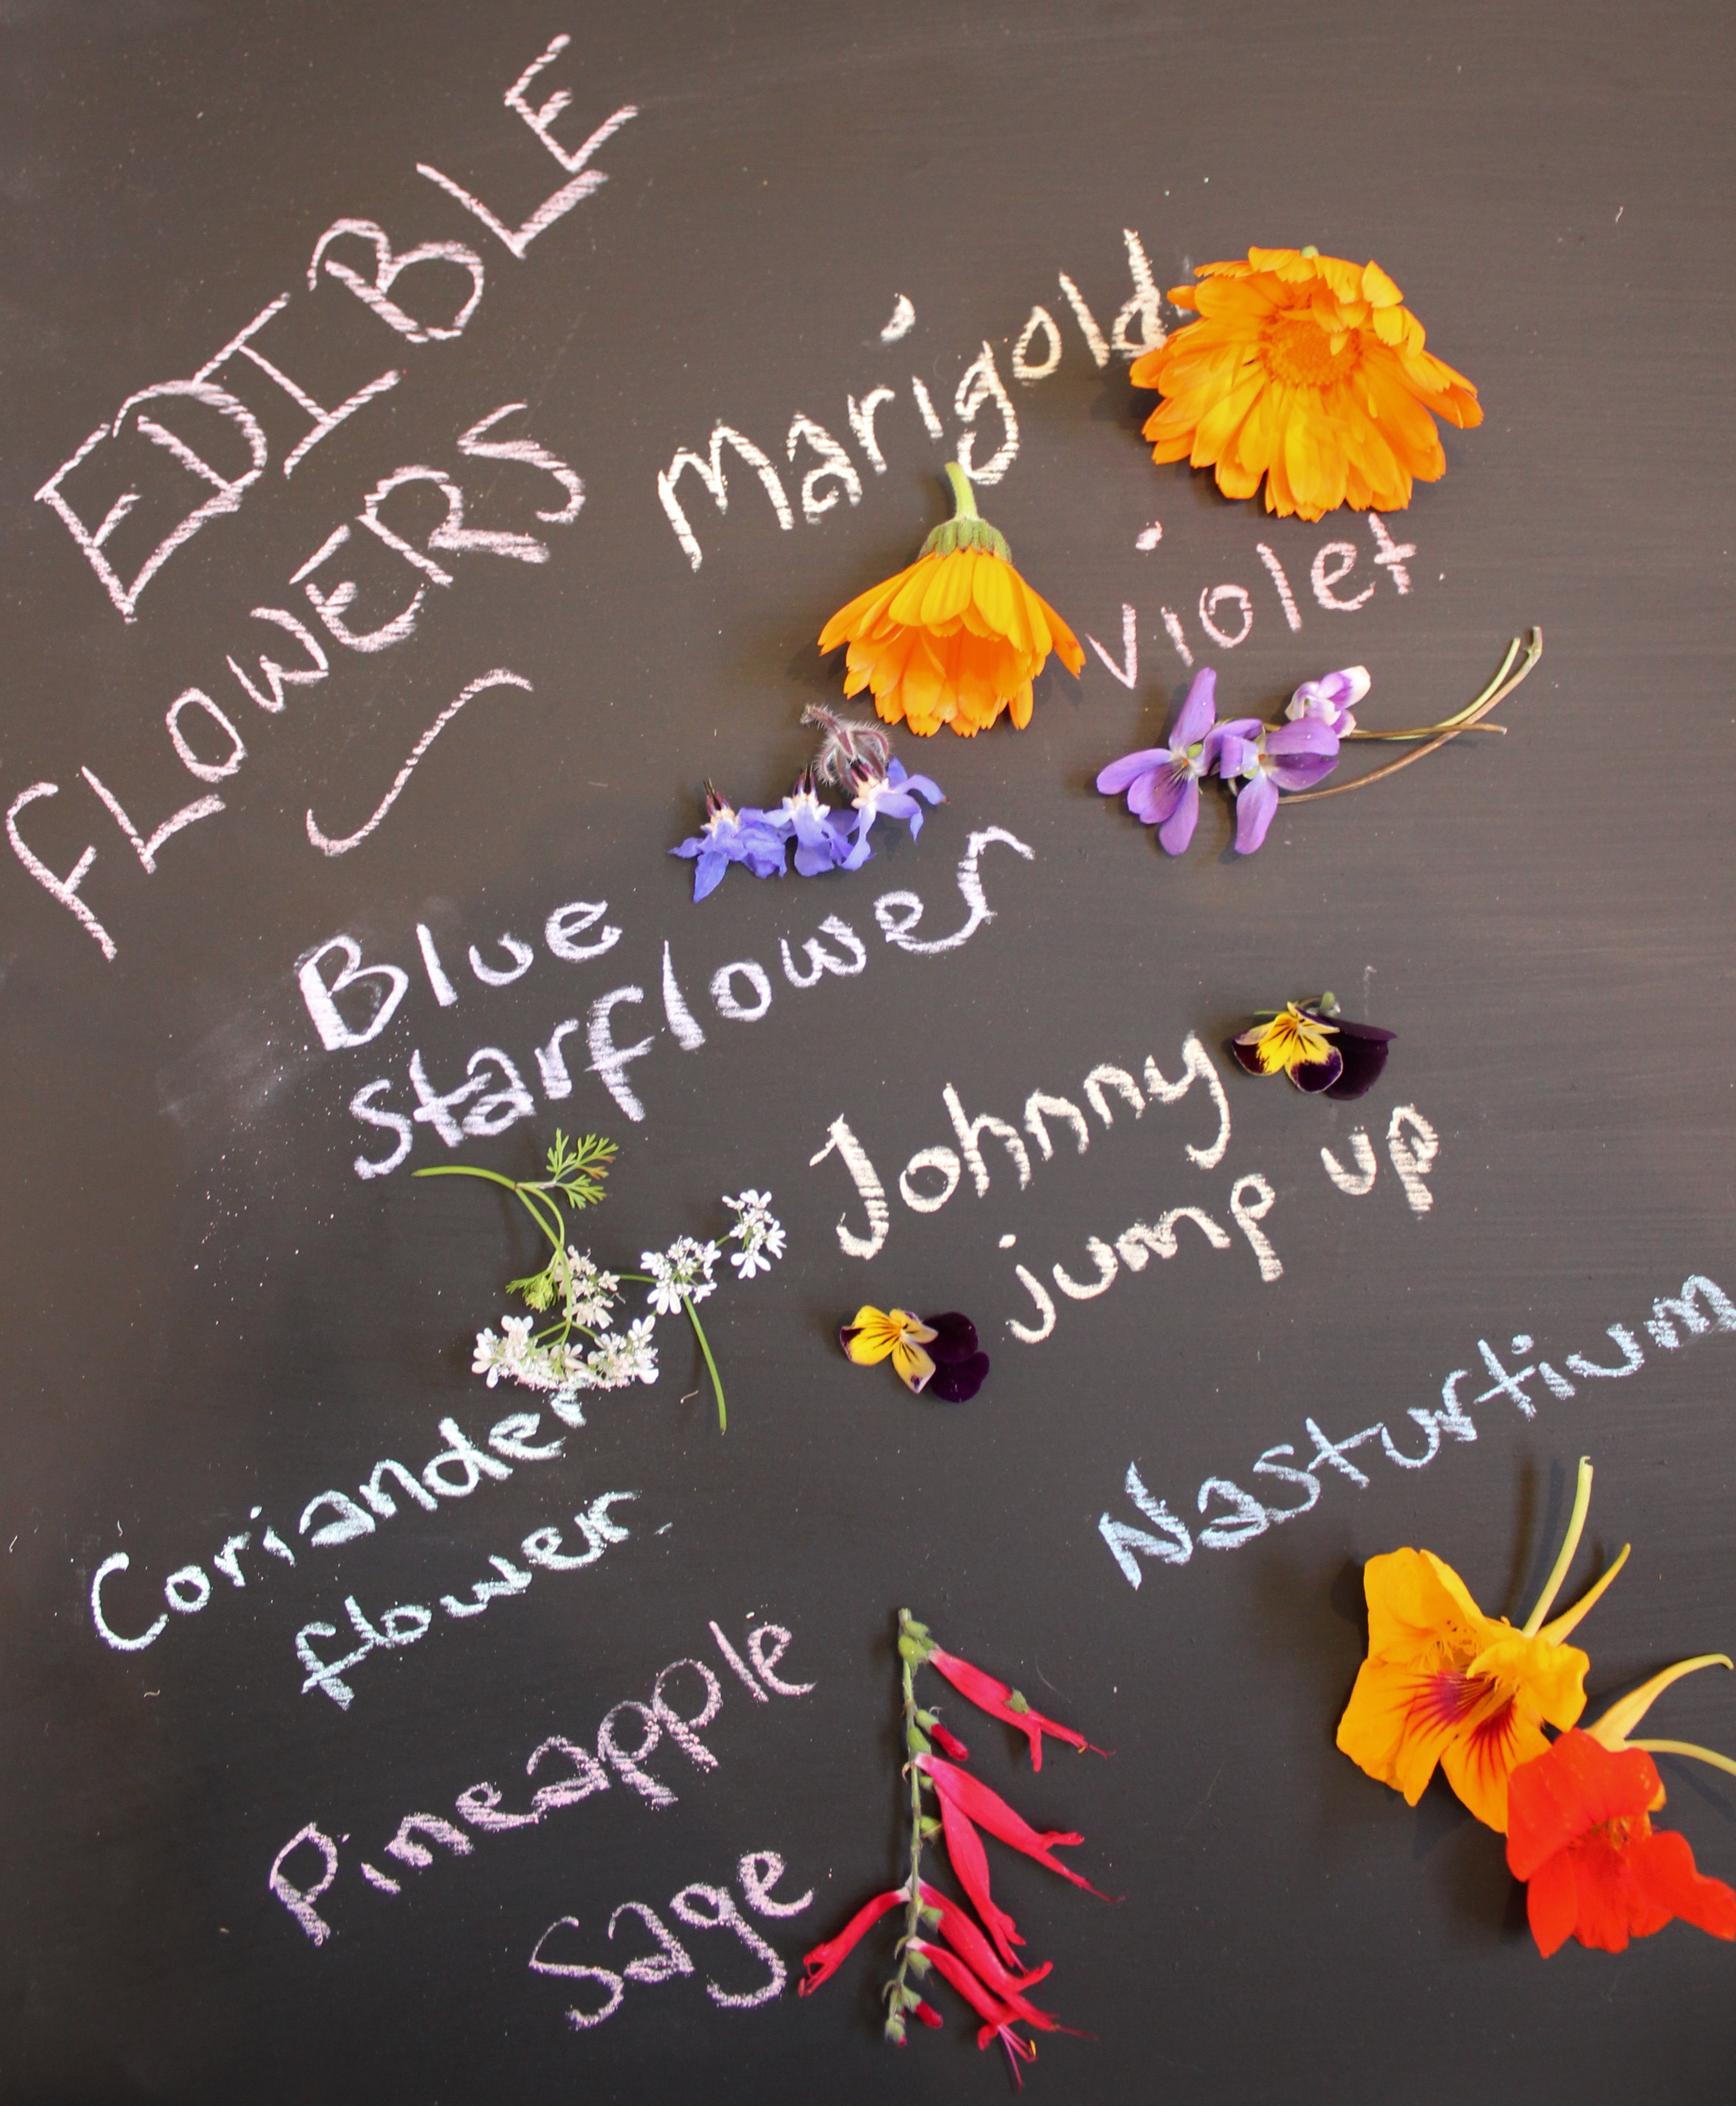 EDIBLE
FLOWERS
Marigold
violet
Blue
starflower
Johnny
jump up
Coriander
flower
Nasturtium
Pineapple
Sage